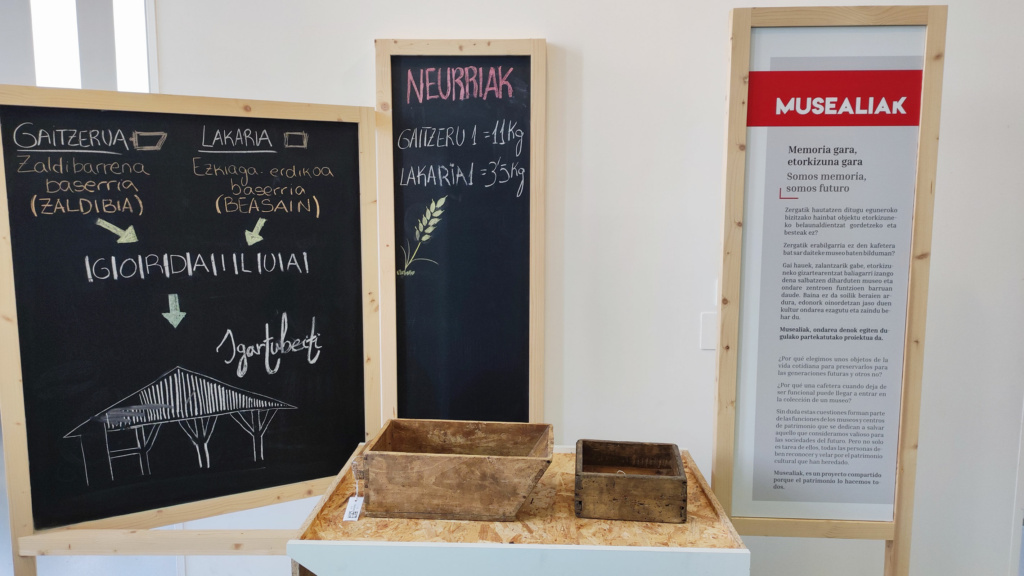 GAITZERUA
Zaldibarrena
baserria
(ZALDIBIA)
LAKARIA
Ezkiaga-erdikoa
baserria
(BEASAIN)
GORDAILUA
Igartubeiti
NEURRIAK
GAITZERU 1 = 11Kg
LAKARIA 1 = 3'5Kg
MUSEALIAK
Memoria gara,
etorkizuna gara
Somos memoria,
somos futuro
Zergatik hautatzen ditugu eguneroko
hizitzako hainbat objektu etorkizune-
ko belaunaldientzat gordetzeko eta
besteak ez?
Zergatik erabilgarria ez den kafetera
bat sar daiteke museo baten bilduman?
Gai hauek, zalantzarik gabe, etorkizu-
neko gizartearentzat baliagarri izango
dena salbatzen diharduten museo eta
ondare zentroen funtzioen barruan
daude. Baina ez da soilik beraien ar-
dura, edonork oinordetzan jaso duen
kultur ondarea ezagutu eta zaindu be-
har du.
Musealiak, ondarea denok egiten du-
gulako partekatutako proiektua da.
¿Por qué elegimos unos objetos de la
vida cotidiana para preservarlos para
las generaciones futuras y otros no?
¿Por qué una cafetera cuando deja de
ser funcional puede llegar a entrar en
la colección de un museo?
Sin duda estas cuestiones forman parte
de las funciones de los museos y centros
de patrimonio que se dedican a salvar
aquello que consideramos valioso para
las sociedades del futuro. Pero no solo
es tarea de ellos, todas las personas de-
ben reconocer y velar por el patrimonio
cultural que han heredado.
Musealiak, es un proyecto compartido
porque el patrimonio lo hacemos to-
dos.